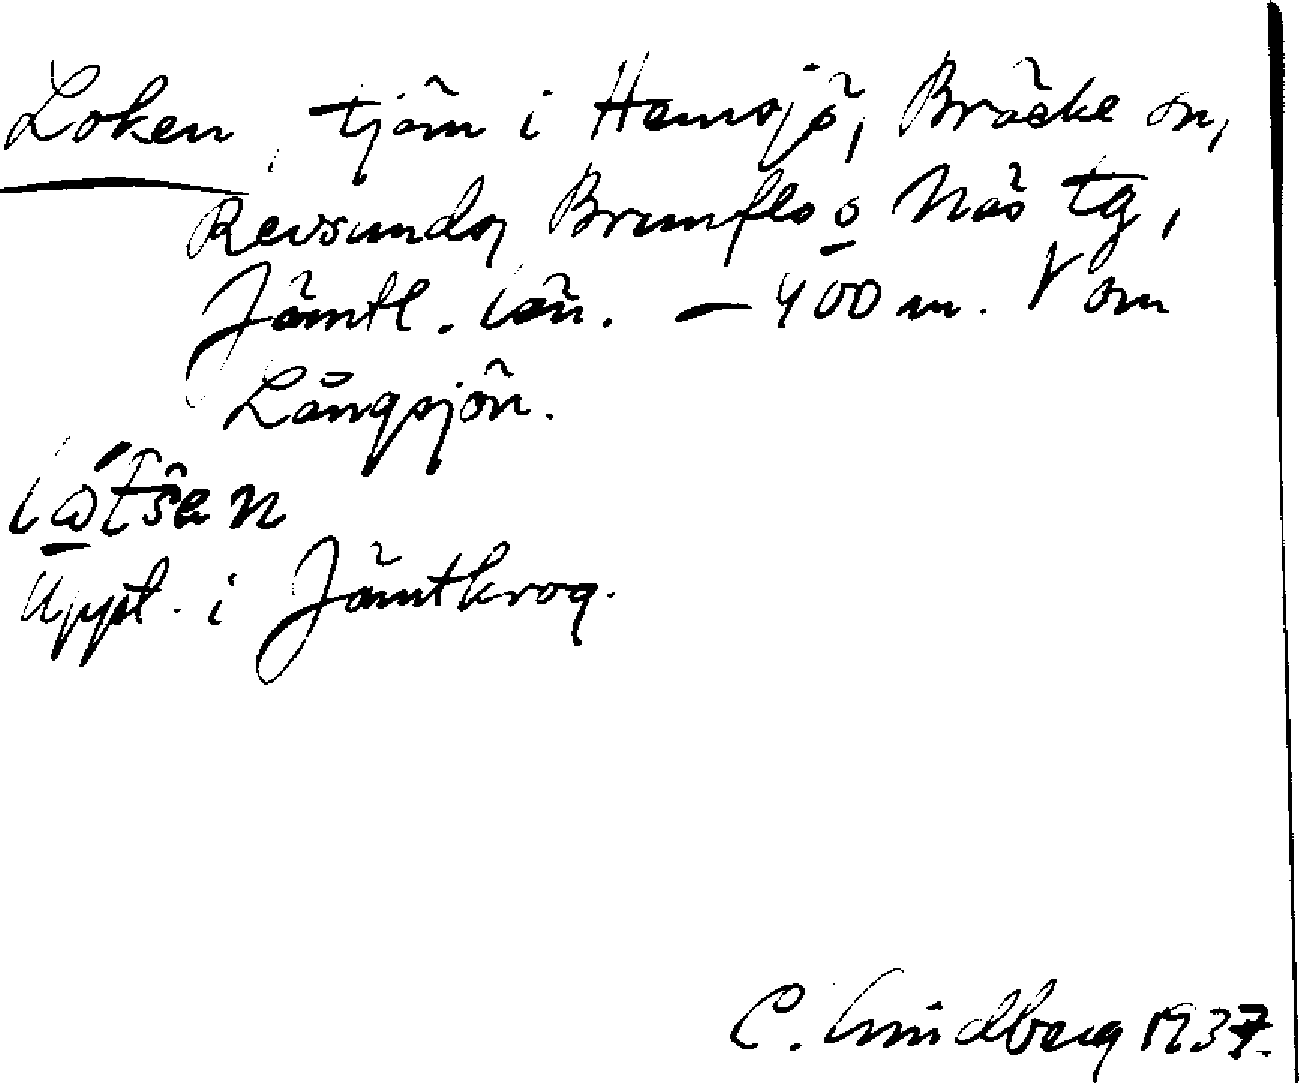 Loken, tjärn i Hemsjö, Bräcke sn,
Revsunds, Brunflo o Näs tg,
Jämtl. län. — 400 m. V om
Långsjön.
Uppt. i Jämtkrog.
C. Lindberg 1937.